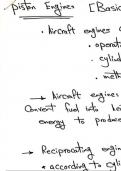 Piston Engines [Basic
• Aircraft engines c
• operati
• cylind
• meth
→ Aircraft engines
Convert fuel into
energy to produce
→ Reciprocating engin
• according to cyli